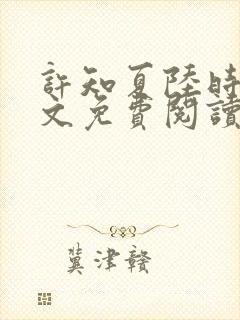 許知夏陸時
文免費閱讀
冀津贛